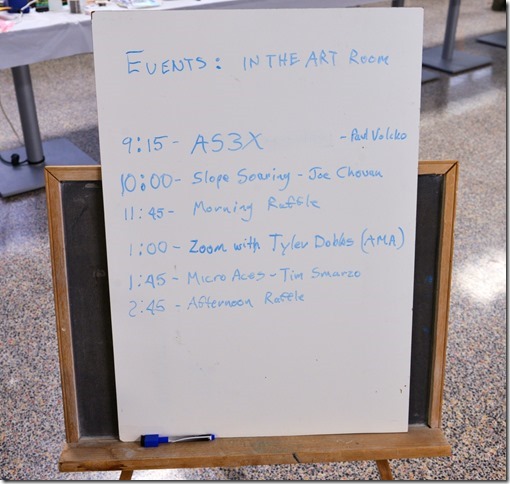 EVENTS: IN THE ART ROOM
9:15 - AS3X - Paul Volcko
10:00 - Slope Soaring - Joe Chovan
11:45 - Morning Raffle
1:00 - Zoom with Tyler Dobbs (AMA)
1:45 - Micro Aces - Tim Smarzo
2:45 - Afternoon Raffle